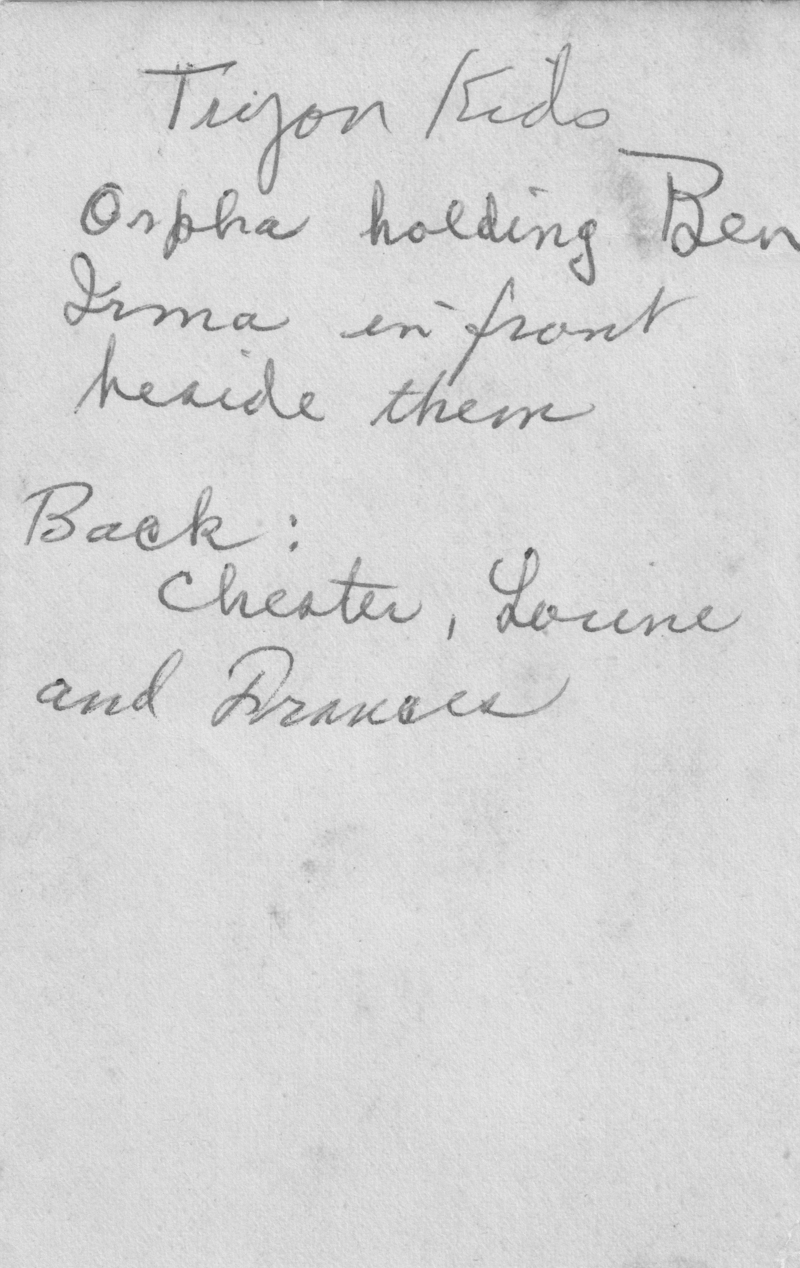 Tryon Kids
Orpha holding Ben
Irma in front
beside them
Back:
Chester, Lorine
and Frances